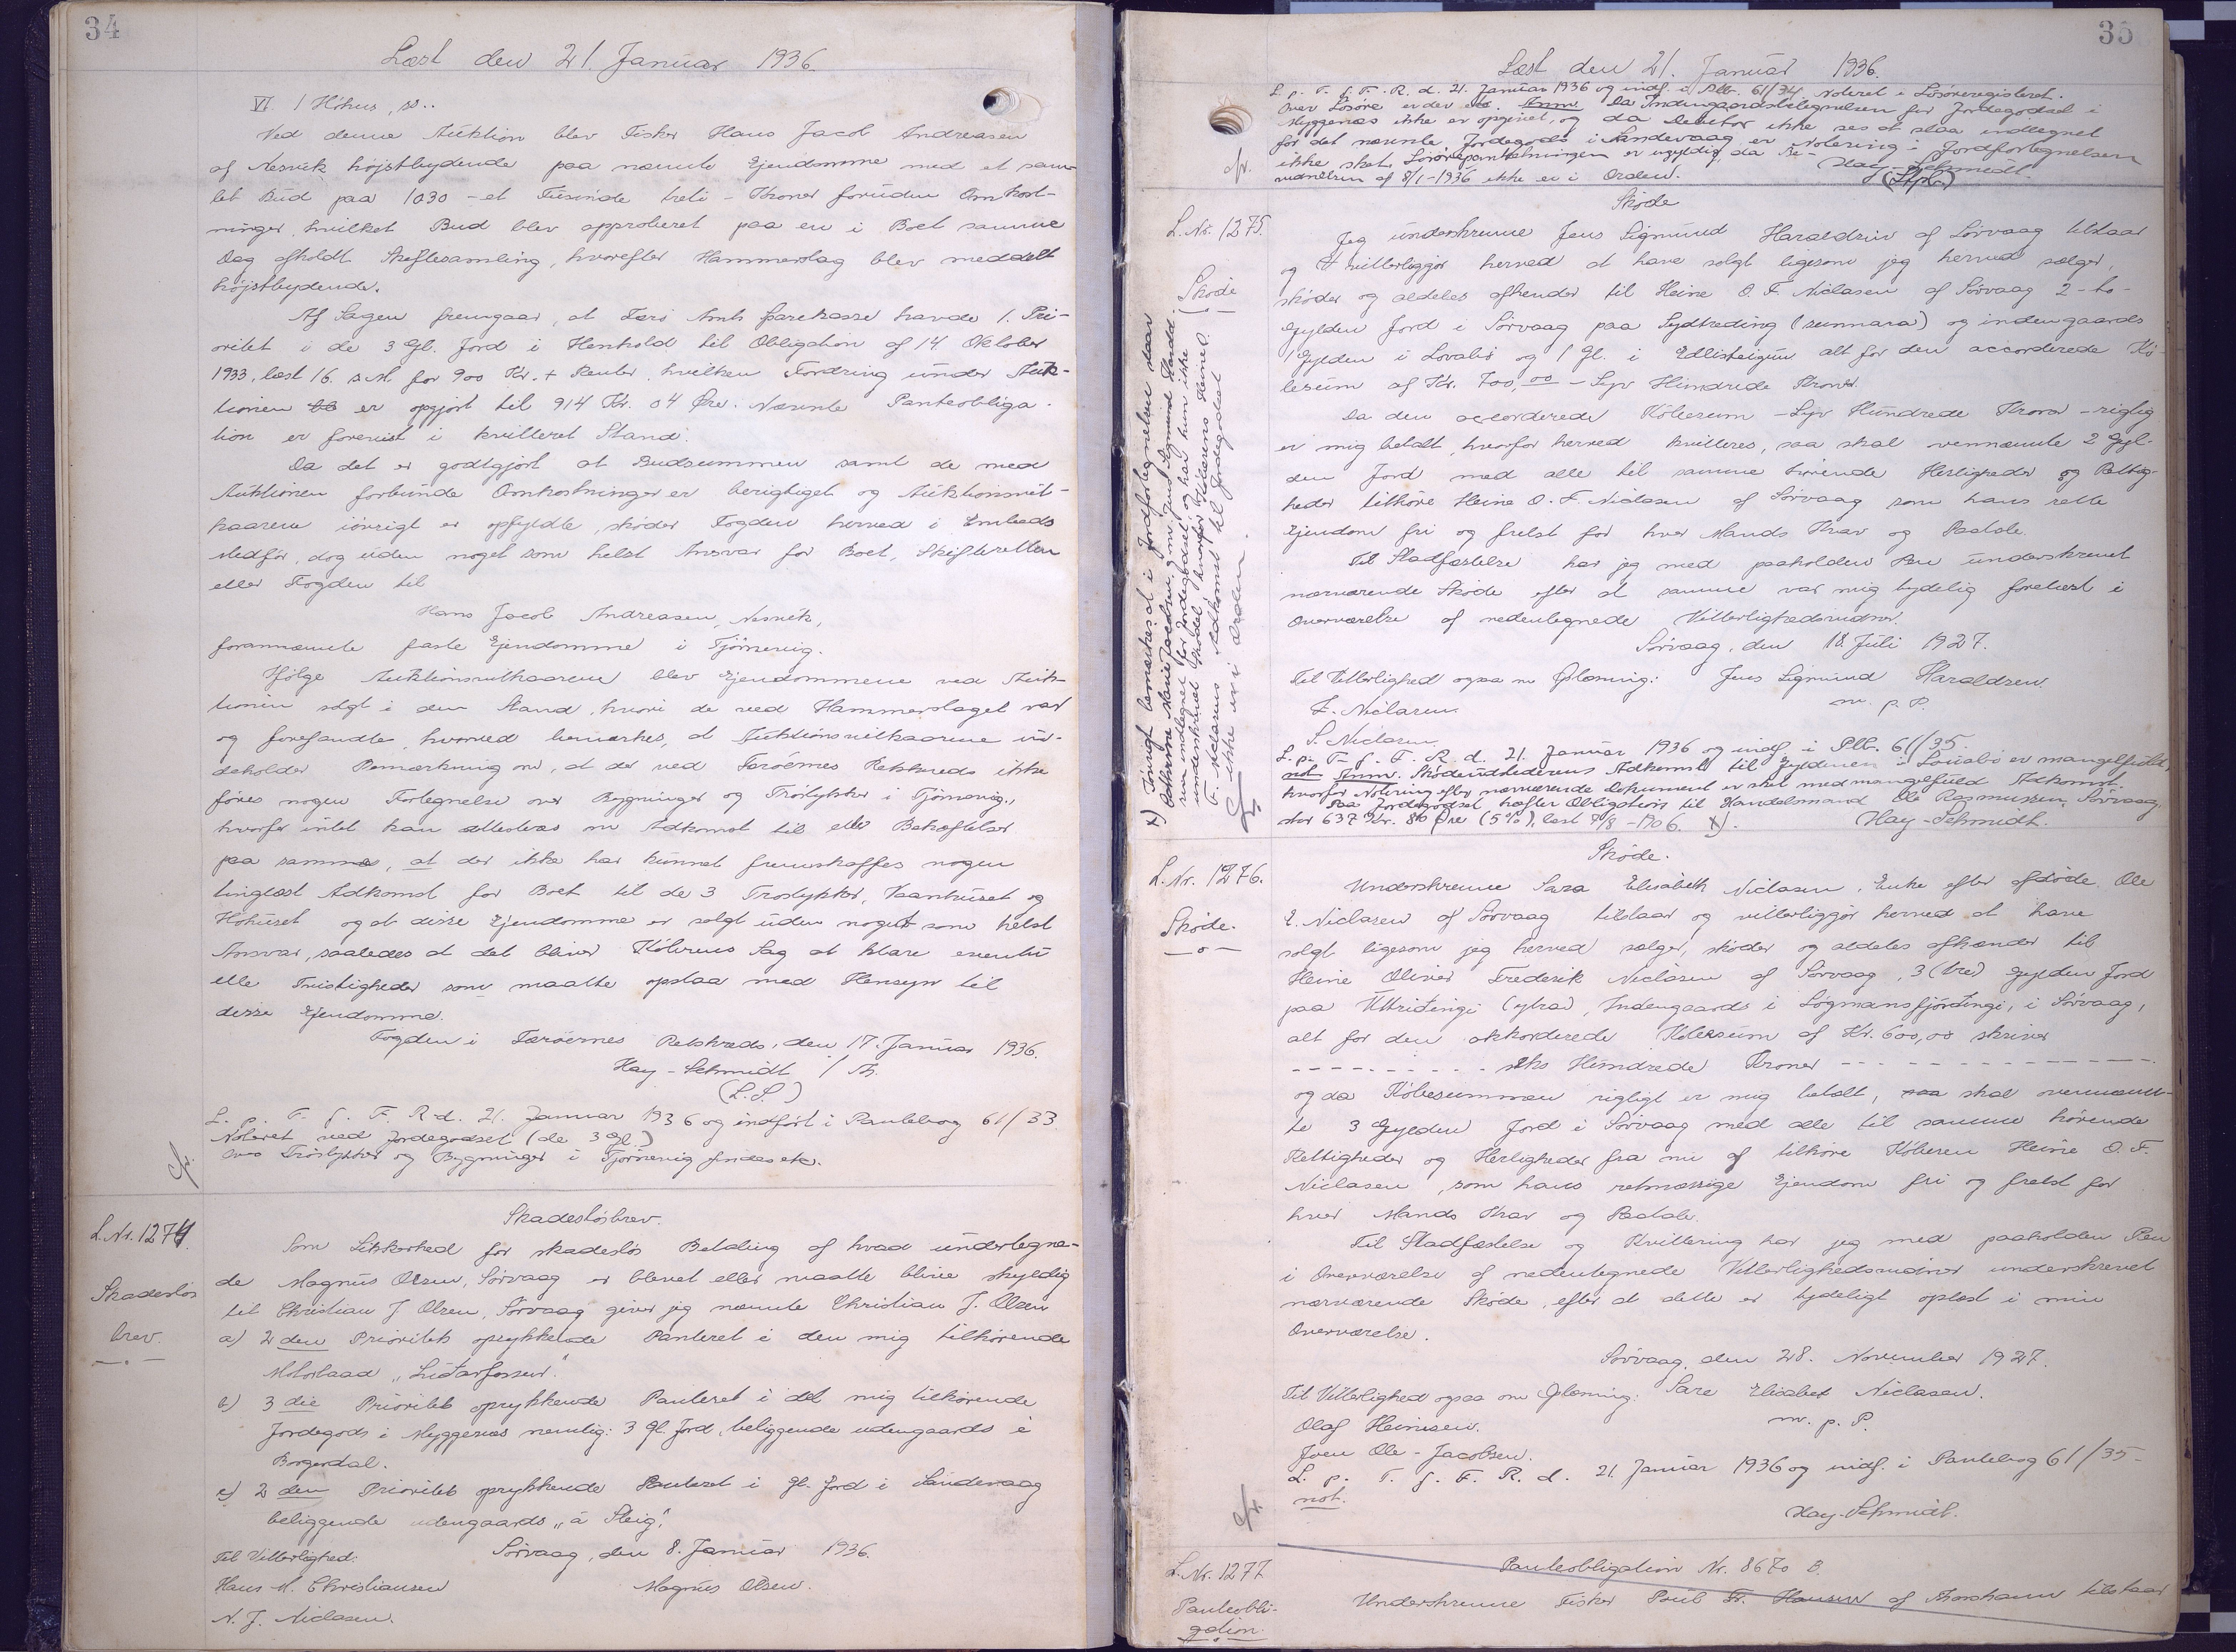 34
Læst den 21. Januar 1936.
VI. 1 Höhus, ss..
Ved denne Auktion blev Fisker Hans Jacob Andreasen
af Nesvik højstbydende paa nævnte Ejendomme med et sam-
let Bud paa 1030 - et Tusinde treti - Kroner foruden Omkost-
ninger, hvilket Bud blev approberet paa en i Boet samme
Dag afholdt Skiftesamling, hvorefter Hammerslag blev meddelt
højstbydende.
Af Sagen fremgaar, at Færö Amts Sparekasse havde 1. Pri-
oritet i de 3 Gl. Jord i Henhold til Obligation af 14. Oktober
1933, læst 16. s.M. for 900 Kr. + Renter, hvilken Fordring under Auk-
tionen er opgjort til 914 Kr. 04 Øre. Nævnte Panteobliga-
tion er forevist i kvitteret Stand.
Da det er godtgjort at Budsummen samt de med
Auktionen forbundne Omkostninger er berigtiget og Auktionsvil-
kaarene iövrigt er opfyldte, sköder Fogden herved i Embeds
Medför, dog uden noget som helst Ansvar for Boet, Skifteretten
eller Fogden til
Hans Jacob Andreasen, Nesvik,
forannævnte faste Ejendomme i Tjörnevig.
Ifölge Auktionsvilkaarene blev Ejendommene ved Auk-
tionen solgt i den Stand, hvori de ved Hammerslaget var
og forefandtes, hvorved bemærkes, at Auktionsvilkaarene in-
deholder Bemærkning om, at der ved Færöernes Retskreds ikke
föres nogen Fortegnelse over Bygninger og Tröstykker i Tjörnevig,
hvorfor intet kan attesteres om Adkomst til eller Behæftelser
paa samme, at der ikke har kunnet fremskaffes nogen
tinglæst Adkomst for Boet til de 3 Tröstykker, Vaanhuset og
Höhuset og at disse Ejendomme er solgt uden noget som helst
Ansvar, saaledes at det bliver Köberens Sag at klare eventu-
elle Tvistigheder som maatte opstaa med Hensyn til
disse Ejendomme.
Fogden i Færöernes Retskreds, den 17. Januar 1936.
Hay-Schmidt
(L.S.)
L. p. T. f. F. R. d. 21. Januar 1936 og indfört i Pantebog 61/33.
Noteret ved Jordegodset (de 3 Gl.)
Over Tröstykker og Bygninger i Tjörnevig findes
cfr.
L.Nr. 1274.
Skadeslös
brev.
Skadeslösbrev.
Som Sikkerhed for skadeslös Betaling af hvad undertegne-
de Magnus Olsen, Sörvaag er blevet eller maatte blive skyldig
til Christian J. Olsen, Sörvaag giver jeg nævnte Christian J. Olsen
a) 2den Prioritets oprykkende Panteret i den mig tilhörende
Motorbaad
b) 3die Prioritets oprykkende Panteret i det mig tilhörende
Jordegods i Myggenæs nemlig: 3 Gl. Jord, beliggende udengaards i
Borgerdal.
c) 2den Prioritets oprykkende Panteret i Gl. Jord i Sandevaag
beliggende udengaards „á Steig".
Til Vitterlighed: Sörvaag, den 8. Januar 1936.
Hans M. Christiansen Magnus Olsen.
N. J. Niclasen.
35
Læst den 21. Januar 1936.
L. p. T. f. F. R. d. 21. Januar 1936 og indf. i Ptb. 61/34. Noteret i Lösöreregisteret.
Over Lösöre er der Anm. Da Indengaardsbetegnelsen for Jordegodset i
Myggenæs ikke er opgivet, og da Debitor ikke ses at staa indtegnet
for det nævnte Jordegods i Sandevaag, er Notering i Jordfortegnelsen
ikke sket. Lösörepantsætningen er ugyldig, da Be-
vidnelsen af 8/1-1936 ikke er i Orden. Hay-Schmidt.
cfr.
L.Nr. 1275.
Sköde
Sköde
Jeg underskrevne Jens Sigmund Haraldsen af Sörvaag tilstaar
og vitterliggjör herved at have solgt ligesom jeg herved sælger,
sköder og aldeles afhender til Heine O. F. Niclasen af Sörvaag 2 - to -
Gylden Jord i Sörvaag paa Sydtreding (sunnara) og indengaards
1 Gylden i Lovabö og 1 Gl. i alt for den accorderede Kö-
besum af Kr. 700,00 - Syv Hundrede Kroner.
Da den accorderede Köbesum - Syv Hundrede Kroner - rigtig
er mig betalt, hvorfor herved kvitteres, saa skal ovennævnte 2 Gyl-
den Jord med alle til samme hörende Herligheder og Rettig-
heder tilhöre Heine O. F. Niclasen af Sörvaag som hans rette
Ejendom fri og frelst for hver Mands Krav og Paatale.
Til Stadfæstelse har jeg med paaholden Pen underskrevet
nærværende Sköde efter at samme var mig tydelig forelæst i
Overværelse af nedentegnede Vitterlighedsvidner.
Sörvaag, den 18. Juli 1927.
Til Vitterlighed ogsaa om Oplæsning: Jens Sigmund Haraldsen.
F. Niclasen. m. p. P.
S. Niclasen
L. p. T. f. F. R. d. 21. Januar 1936 og indf. i Ptb. 61/35.
not Anm. Sködeudstederens Adkomst til Gyldenen i Lauabö er mangelfuld,
hvorfor Notering efter nærværende Dokument er sket med mangelfuld Adkomst.
Paa Jordegodset hæfter Obligation til Handelsmand Ole Rasmussen, Sörvaag,
stor 637 Kr. 86 Øre (5%), læst 7/8-1906. x). Hay-Schmidt.
x) Iövrigt bemærkes at i Jordfortegnelsen staar
Marie Jacobsen, g. m. Jens Sigmund Harald-
sen indtegnet for Jordegodset og har hun ikke
underskrevet Sködet, hvorfor Köberens Heine O.
F. Niclasens Adkomst til Jordegodset
ikke er i Orden.
L.Nr. 1276.
Sköde.
Sköde.
Underskrevne Sara Elisabeth Niclasen, Enke efter afdöde Ole
E. Niclasen af Sörvaag tilstaar og vitterliggjör herved at have
solgt ligesom jeg herved sælger, sköder og aldeles afhænder til
Heine Olivier Frederik Niclasen af Sörvaag, 3 (tre) Gylden Jord
paa Uttriđingi (ytra), Indengaards i Lögmansfjórđingi, i Sörvaag,
alt for den akkorderede Köbesum af Kr. 600,00 skriver
seks Hundrede Kroner
og da Köbesummen rigtigt er mig betalt, saa skal ovennævn-
te 3 Gylden Jord i Sörvaag med alle til samme hörende
Rettigheder og Herligheder fra nu af tilhöre Köberen Heine O. F.
Niclasen, som hans retmæssige Ejendom fri og frelst for
hver Mands Krav og Paatale.
Til Stadfæstelse og Kvittering har jeg med paaholden Pen
i Overværelse af nedentegnede Vitterlighedsvidner underskrevet
nærværende Sköde, efter at dette er tydeligt oplæst i min
Overværelse.
Sörvaag, den 28. November 1927.
Til Vitterlighed ogsaa om Oplæsning: Sare Elisabet Niclasen.
Olaf Heinesen. m. p. P.
Joen Ole-Jacobsen.
L. p. T. f. F. R. d. 21. Januar 1936 og indf. i Pantebog 61/35
not.
Hay-Schmidt.
cfr.
L.Nr. 1277
Panteobli-
gation.
Panteobligation Nr. 8670 B.
Underskrevne Fisker Poul Fr. Hansen af Thorshavn tilstaar